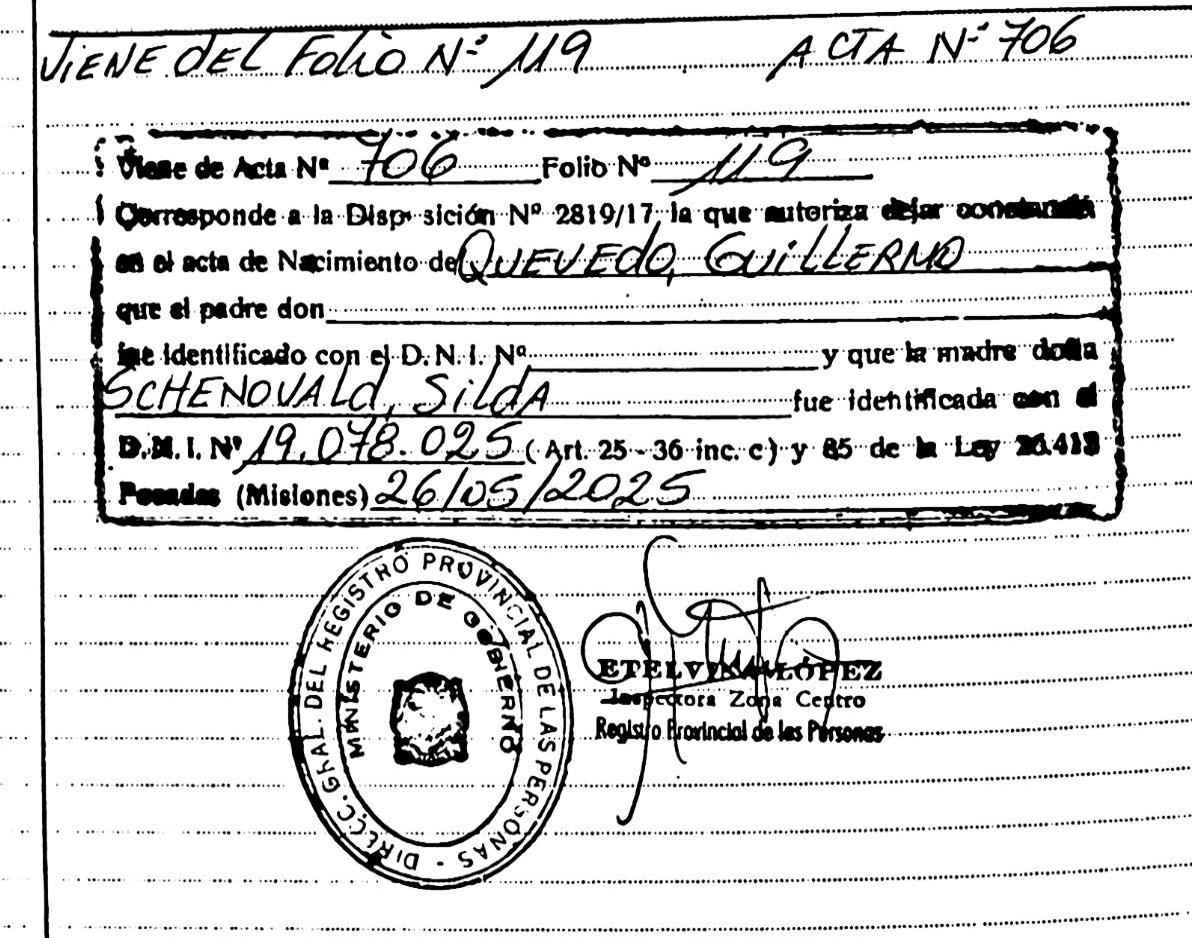 VIENE DEL FOLIO Nº 119 ACTA Nº 706
Viene de Acta Nº 706 Folio Nº 119
Corresponde a la Disposición Nº 2819/17, la que autoriza dejar constancia
en el acta de Nacimiento de QUEVEDO, GUILLERMO
que el padre don
fue identificado con el D. N. I. Nº y que la madre doña
SCHENOVALD, SILDA fue identificada con el
D. N. I. Nº 19.078.025 (Art. 25 - 36 inc. c) y 85 de la Ley 26.413
Posadas (Misiones) 26/05/2025
DIRECC. GRAL. DEL REGISTRO PROVINCIAL DE LAS PERSONAS -
MINISTERIO DE GOBIERNO
ETELVINA LÓPEZ
Inspectora Zona Centro
Registro Provincial de las Personas